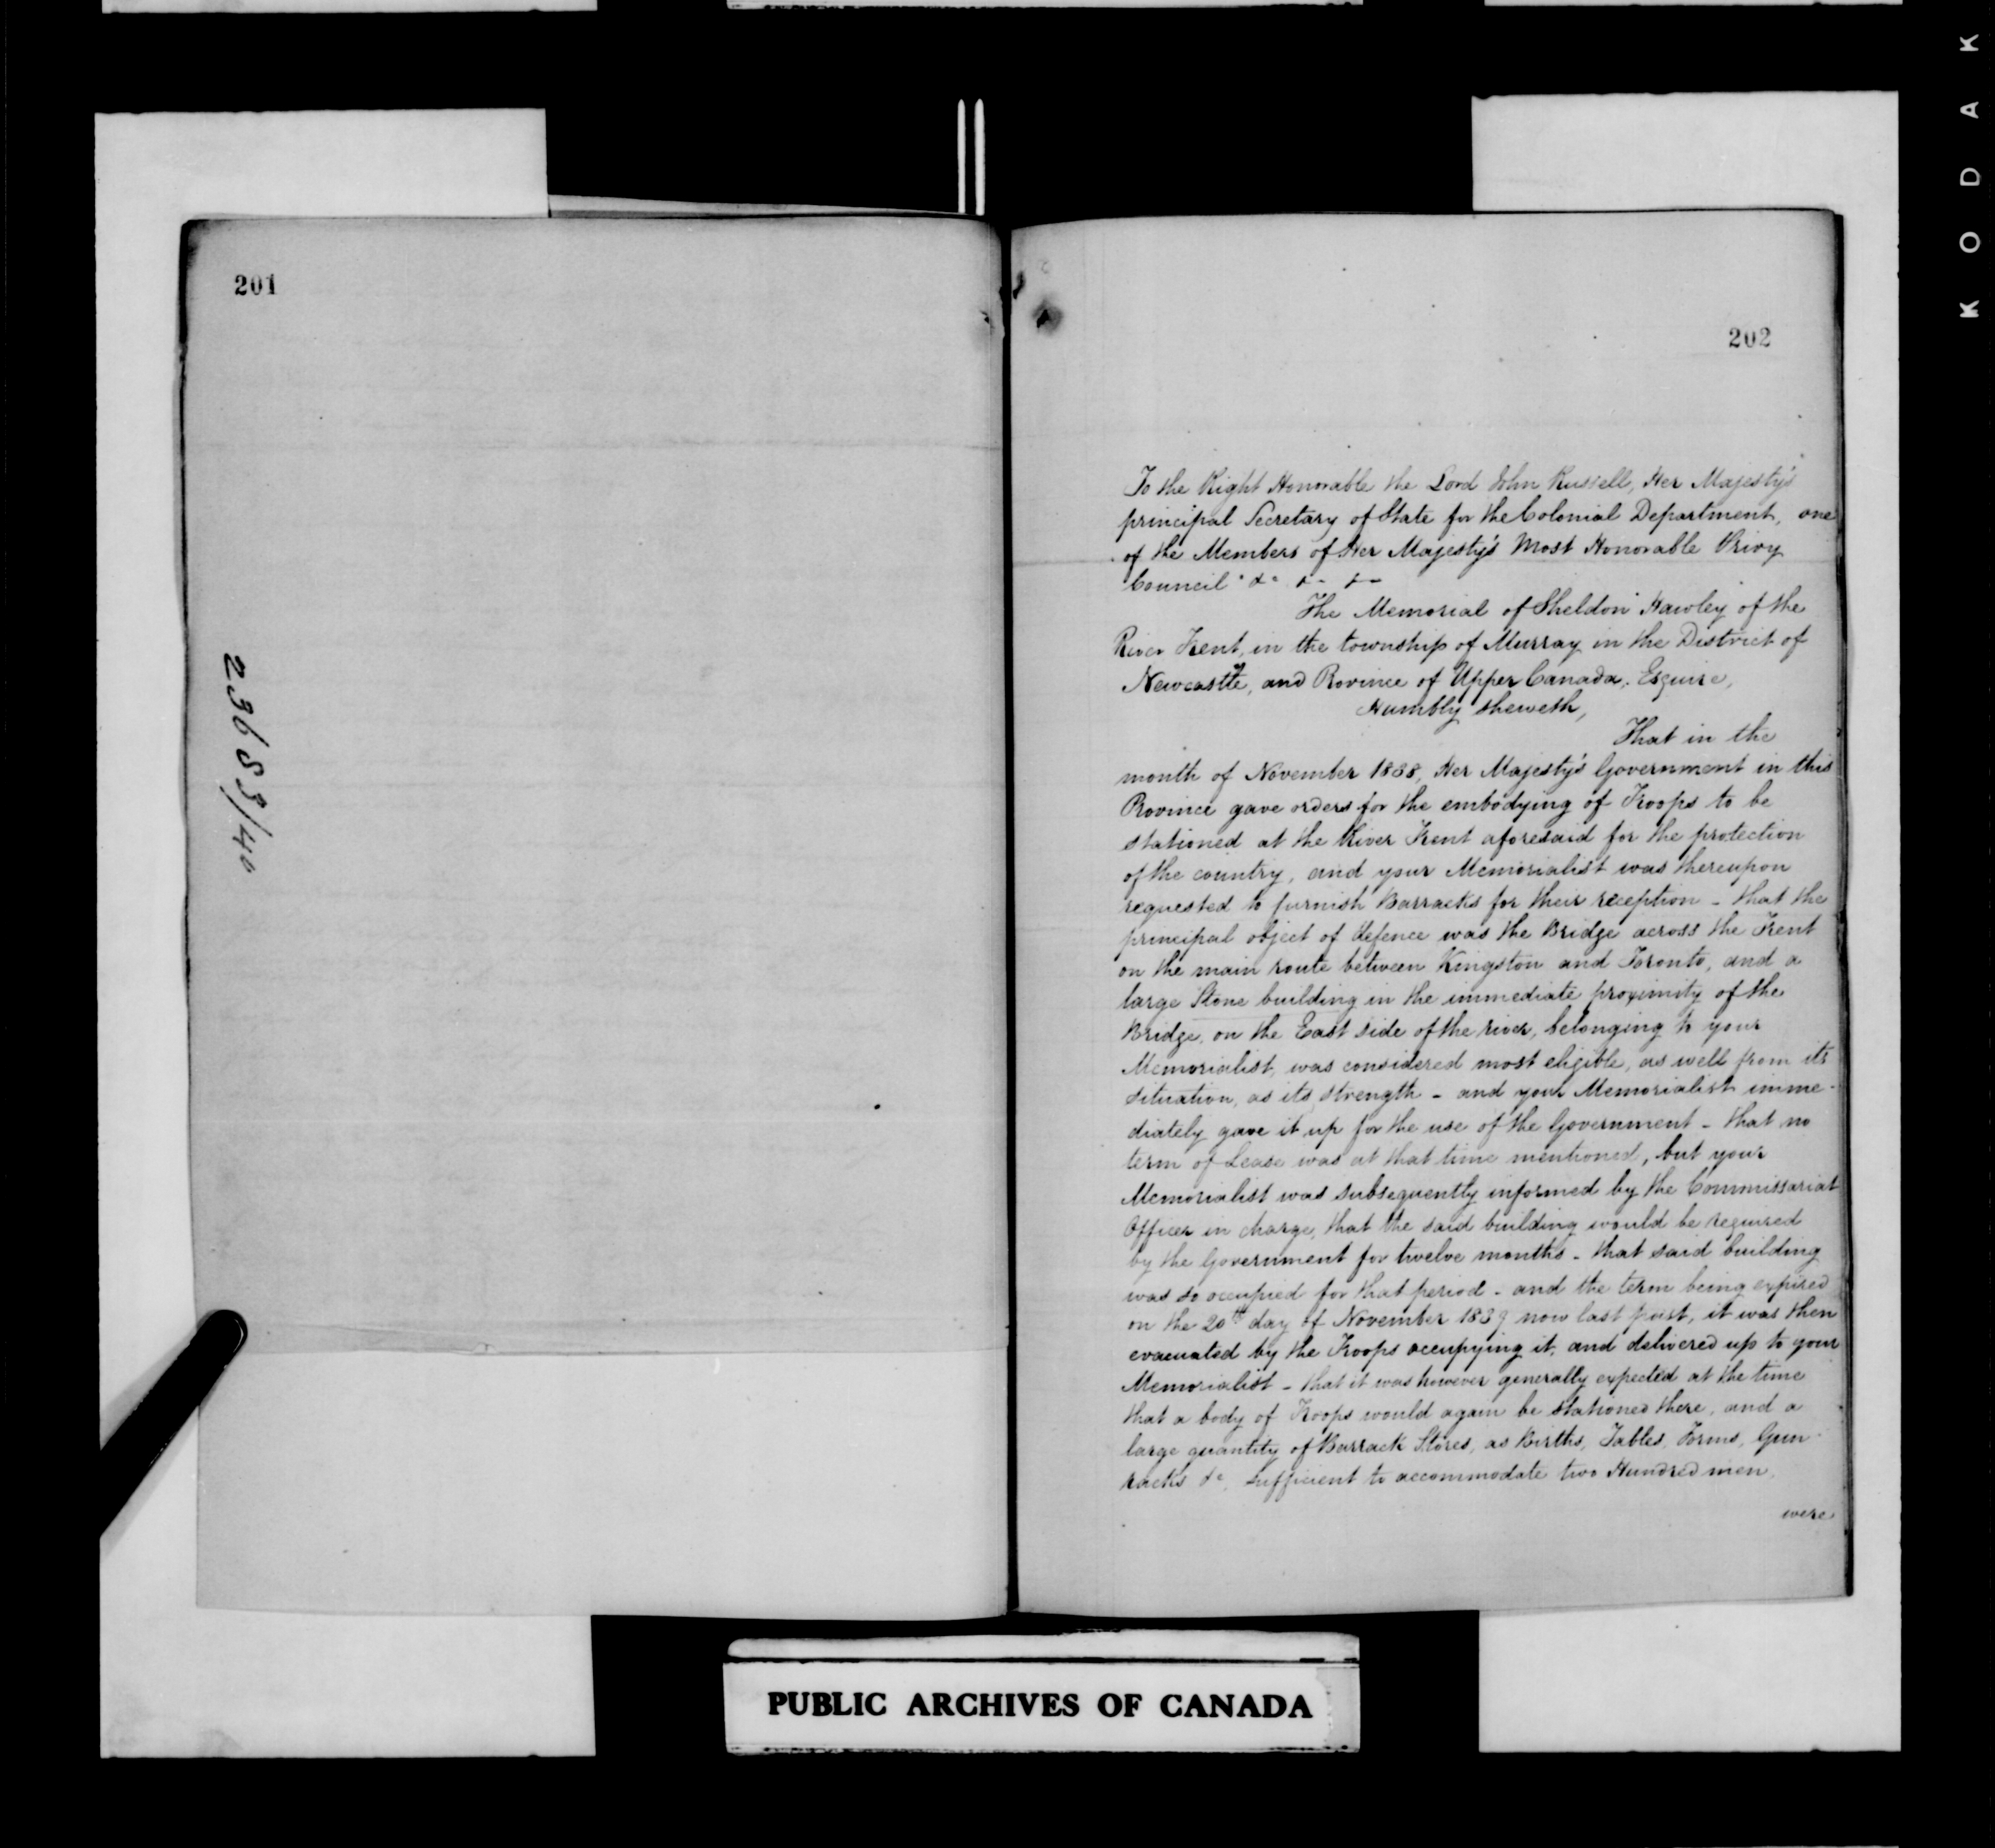 201
23653/40
202
To the Right Honorable the Lord John Russell, Her Majesty's
principal Secretary of State for the Colonial Department, one
of the Members of Her Majesty's Most Honorable Privy
Council &c &c &c
The Memorial of Sheldon Hawley of the
River Trent, in the township of Murray in the District of
Newcastle, and Province of Upper Canada, Esquire,
Humbly sheweth,
That in the
month of November 1838, Her Majesty's Government in this
Province gave orders for the embodying of Troops to be
stationed at the River Trent aforesaid for the protection
of the country, and your Memorialist was thereupon
requested to furnish Barracks for their reception - that the
principal object of defence was the Bridge across the Trent
on the main route between Kingston and Toronto, and a
large Stone building in the immediate proximity of the
Bridge, on the East side of the river, belonging to your
Memorialist, was considered most eligible, as well from its
situation, as its strength - and your Memorialist imme-
diately gave it up for the use of the Government - that no
term of Lease was at that time mentioned, but your
Memorialist was subsequently informed by the Commissariat
Officer in charge, that the said building would be required
by the Government for twelve months - that said building
was so occupied for that period - and the term being expired
on the 20th day of November 1839 now last past, it was then
evacuated by the Troops occupying it, and delivered up to your
Memorialist - that it was however generally expected at the time
that a body of Troops would again be stationed there, and a
large quantity of Barrack Stores, as Births, Tables, Forms, Gun
racks &c, sufficient to accommodate two Hundred men,
were
PUBLIC ARCHIVES OF CANADA
KODAK